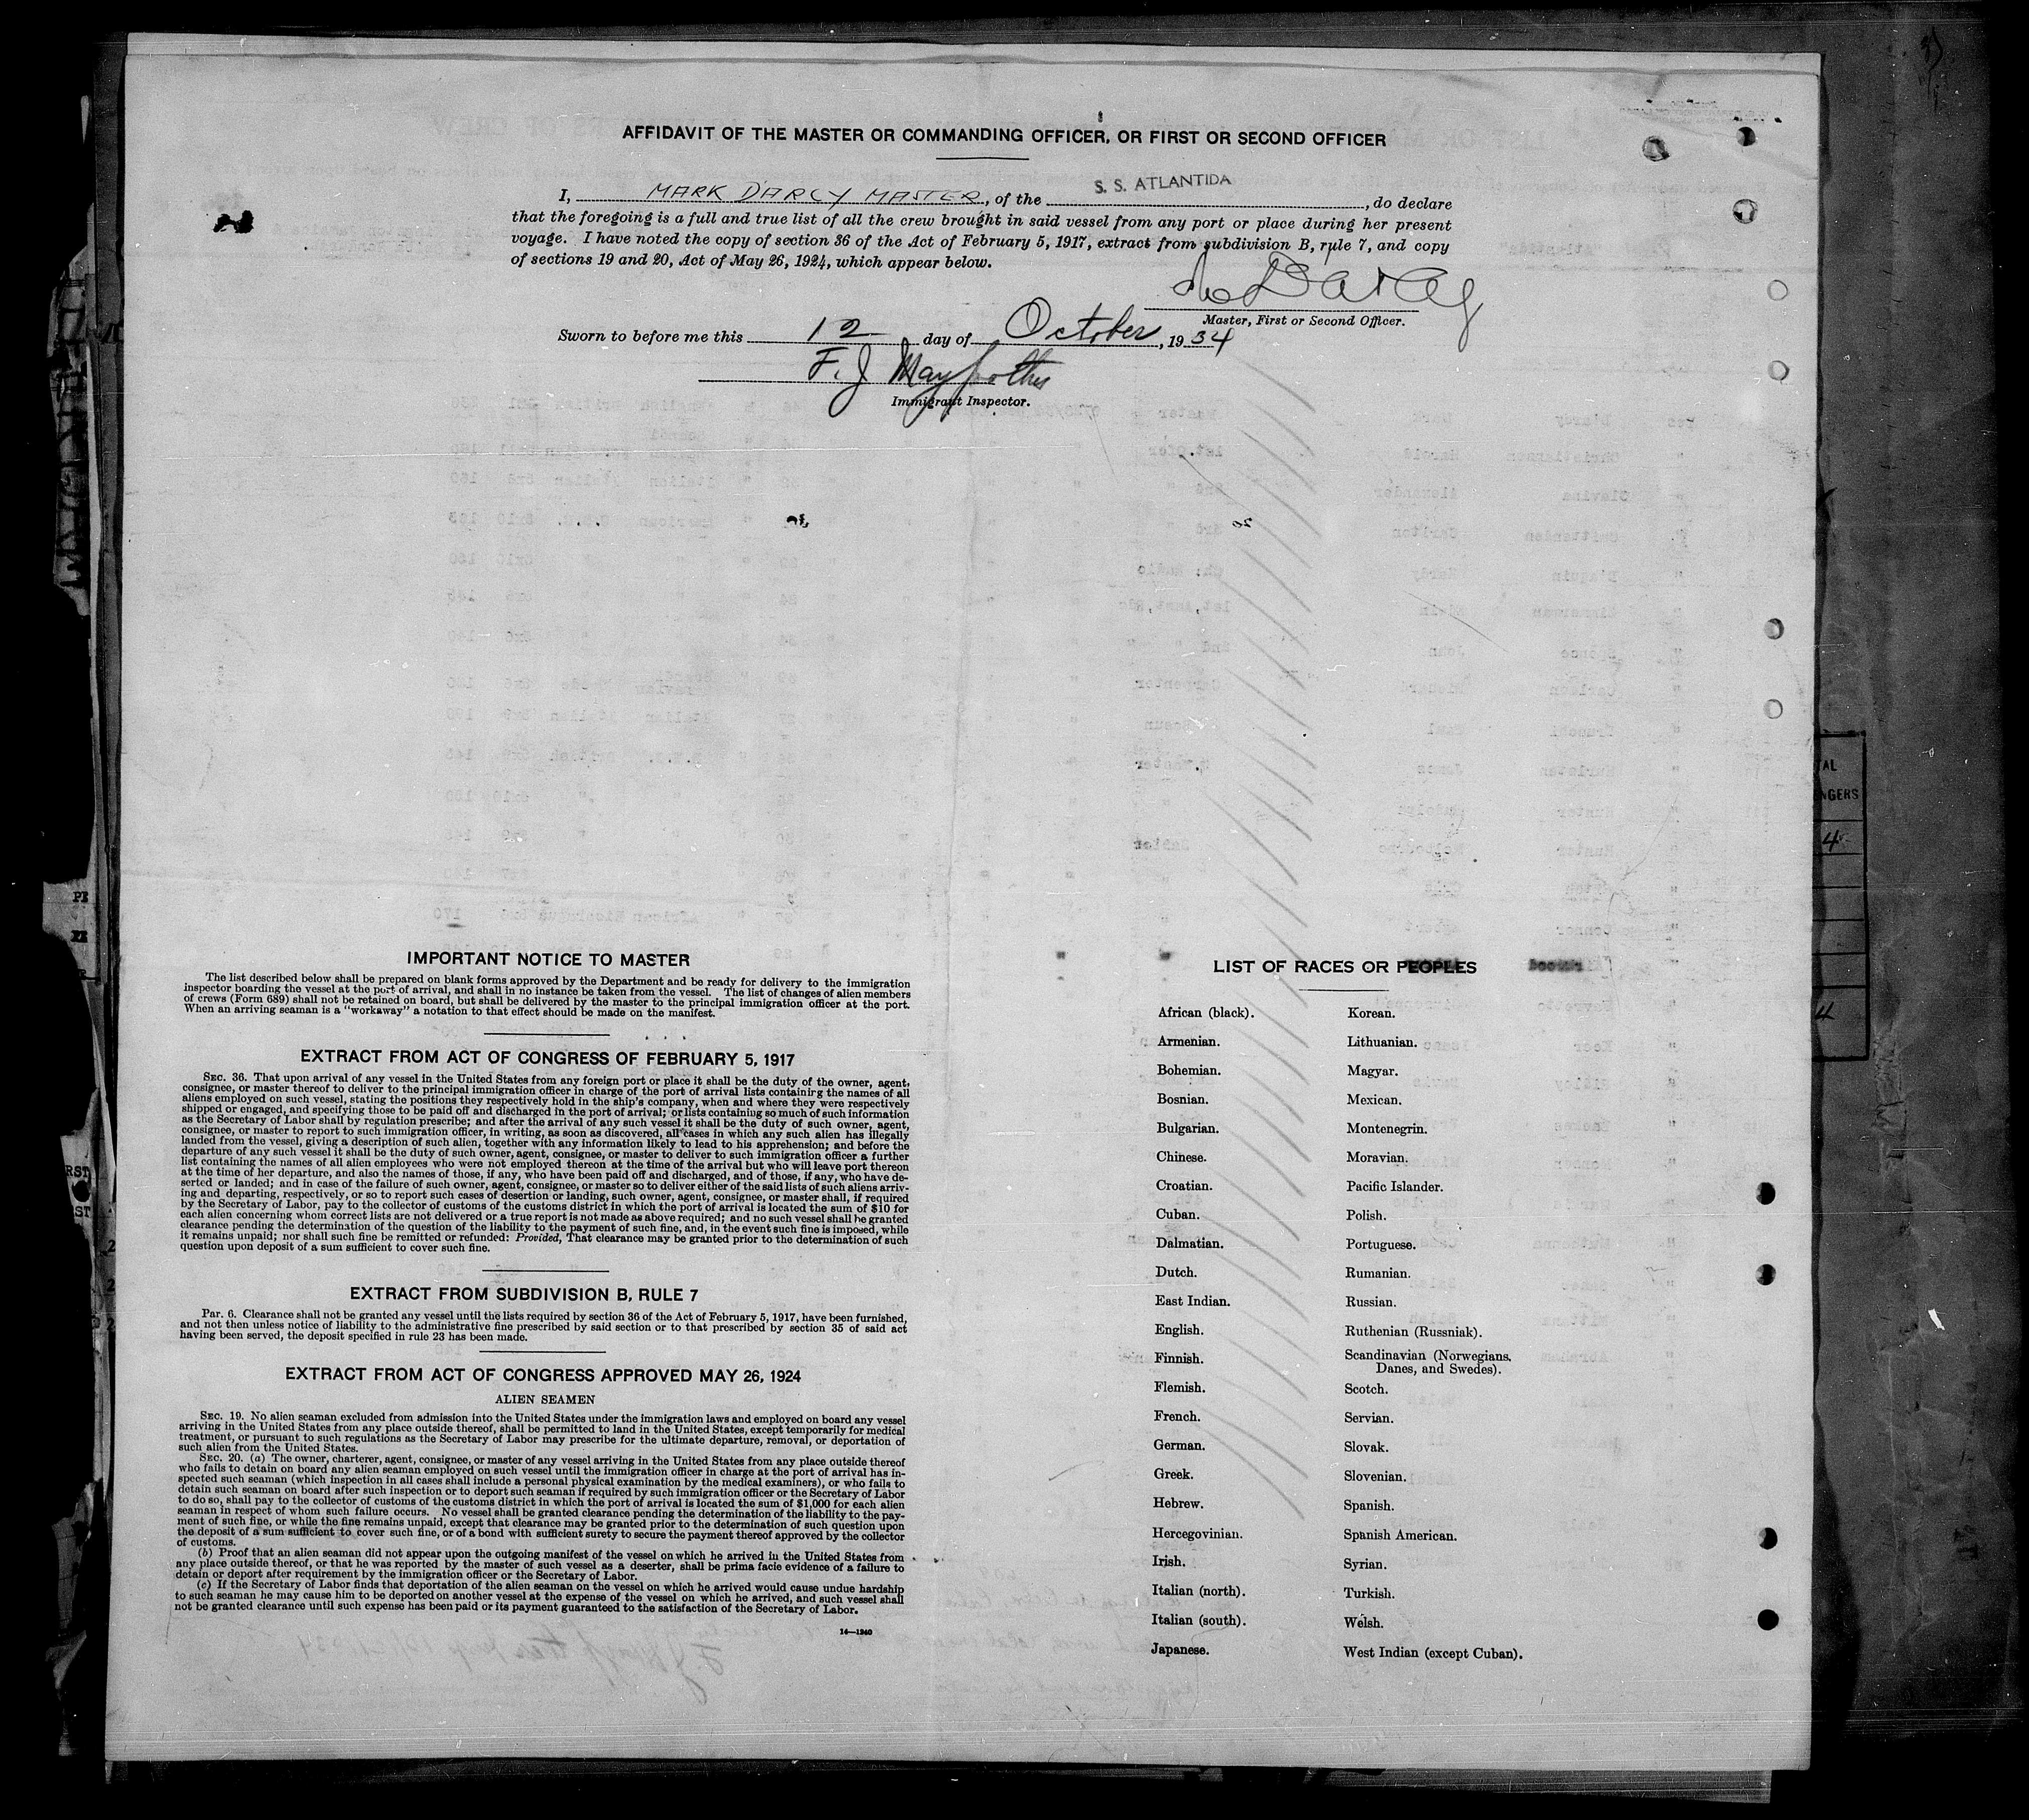 AFFIDAVIT OF THE MASTER OR COMMANDING OFFICER, OR FIRST OR SECOND OFFICER
I, MARK D'ARCY MASTER, of the S. S. ATLANTIDA, do declare
that the foregoing is a full and true list of all the crew brought in said vessel from any port or place during her present
voyage. I have noted the copy of section 36 of the Act of February 5, 1917, extract from subdivision B, rule 7, and copy
of sections 19 and 20, Act of May 26, 1924, which appear below.
Master, First or Second Officer.
Sworn to before me this 12 day of October, 1934
F. J
Immigrant Inspector.
IMPORTANT NOTICE TO MASTER
The list described below shall be prepared on blank forms approved by the Department and be ready for delivery to the immigration
inspector boarding the vessel at the port of arrival, and shall in no instance be taken from the vessel. The list of changes of alien members
of crews (Form 689) shall not be retained on board, but shall be delivered by the master to the principal immigration officer at the port.
When an arriving seaman is a "workaway" a notation to that effect should be made on the manifest.
EXTRACT FROM ACT OF CONGRESS OF FEBRUARY 5, 1917
SEC. 36. That upon arrival of any vessel in the United States from any foreign port or place it shall be the duty of the owner, agent,
consignee, or master thereof to deliver to the principal immigration officer in charge of the port of arrival lists containing the names of all
aliens employed on such vessel, stating the positions they respectively hold in the ship's company, when and where they were respectively
shipped or engaged, and specifying those to be paid off and discharged in the port of arrival; or lists containing so much of such information
as the Secretary of Labor shall by regulation prescribe; and after the arrival of any such vessel it shall be the duty of such owner, agent,
consignee, or master to report to such immigration officer, in writing, as soon as discovered, all cases in which any such alien has illegally
landed from the vessel, giving a description of such alien, together with any information likely to lead to his apprehension; and before the
departure of any such vessel it shall be the duty of such owner, agent, consignee, or master to deliver to such immigration officer a further
list containing the names of all alien employees who were not employed thereon at the time of the arrival but who will leave port thereon
at the time of her departure, and also the names of those, if any, who have been paid off and discharged, and of those, if any, who have de-
serted or landed; and in case of the failure of such owner, agent, consignee, or master so to deliver either of the said lists of such aliens arriv-
ing and departing, respectively, or so to report such cases of desertion or landing, such owner, agent, consignee, or master shall, if required
by the Secretary of Labor, pay to the collector of customs of the customs district in which the port of arrival is located the sum of $10 for
each alien concerning whom correct lists are not delivered or a true report is not made as above required; and no such vessel shall be granted
clearance pending the determination of the question of the liability to the payment of such fine, and, in the event such fine is imposed, while
it remains unpaid; nor shall such fine be remitted or refunded: Provided, That clearance may be granted prior to the determination of such
question upon deposit of a sum sufficient to cover such fine.
EXTRACT FROM SUBDIVISION B, RULE 7
PAR. 6. Clearance shall not be granted any vessel until the lists required by section 36 of the Act of February 5, 1917, have been furnished,
and not then unless notice of liability to the administrative fine prescribed by said section or to that prescribed by section 35 of said act
having been served, the deposit specified in rule 23 has been made.
EXTRACT FROM ACT OF CONGRESS APPROVED MAY 26, 1924
ALIEN SEAMEN
SEC. 19. No alien seaman excluded from admission into the United States under the immigration laws and employed on board any vessel
arriving in the United States from any place outside thereof, shall be permitted to land in the United States, except temporarily for medical
treatment, or pursuant to such regulations as the Secretary of Labor may prescribe for the ultimate departure, removal, or deportation of
such alien from the United States.
SEC. 20. (a) The owner, charterer, agent, consignee, or master of any vessel arriving in the United States from any place outside thereof
who fails to detain on board any alien seaman employed on such vessel until the immigration officer in charge at the port of arrival has in-
spected such seaman (which inspection in all cases shall include a personal physical examination by the medical examiners), or who fails to
detain such seaman on board after such inspection or to deport such seaman if required by such immigration officer or the Secretary of Labor
to do so, shall pay to the collector of customs of the customs district in which the port of arrival is located the sum of $1,000 for each alien
seaman in respect of whom such failure occurs. No vessel shall be granted clearance pending the determination of the liability to the pay-
ment of such fine, or while the fine remains unpaid, except that clearance may be granted prior to the determination of such question upon
the deposit of a sum sufficient to cover such fine, or of a bond with sufficient surety to secure the payment thereof approved by the collector
of customs.
(b) Proof that an alien seaman did not appear upon the outgoing manifest of the vessel on which he arrived in the United States from
any place outside thereof, or that he was reported by the master of such vessel as a deserter, shall be prima facie evidence of a failure to
detain or deport after requirement by the immigration officer or the Secretary of Labor.
(c) If the Secretary of Labor finds that deportation of the alien seaman on the vessel on which he arrived would cause undue hardship
to such seaman he may cause him to be deported on another vessel at the expense of the vessel on which he arrived, and such vessel shall
not be granted clearance until such expense has been paid or its payment guaranteed to the satisfaction of the Secretary of Labor.
14—1240
LIST OF RACES OR PEOPLES
African (black).
Armenian.
Bohemian.
Bosnian.
Bulgarian.
Chinese.
Croatian.
Cuban.
Dalmatian.
Dutch.
East Indian.
English.
Finnish.
Flemish.
French.
German.
Greek.
Hebrew.
Hercegovinian.
Irish.
Italian (north).
Italian (south).
Japanese.
Korean.
Lithuanian.
Magyar.
Mexican.
Montenegrin.
Moravian.
Pacific Islander.
Polish.
Portuguese.
Rumanian.
Russian.
Ruthenian (Russniak).
Scandinavian (Norwegians,
Danes, and Swedes).
Scotch.
Servian.
Slovak.
Slovenian.
Spanish.
Spanish American.
Syrian.
Turkish.
Welsh.
West Indian (except Cuban).